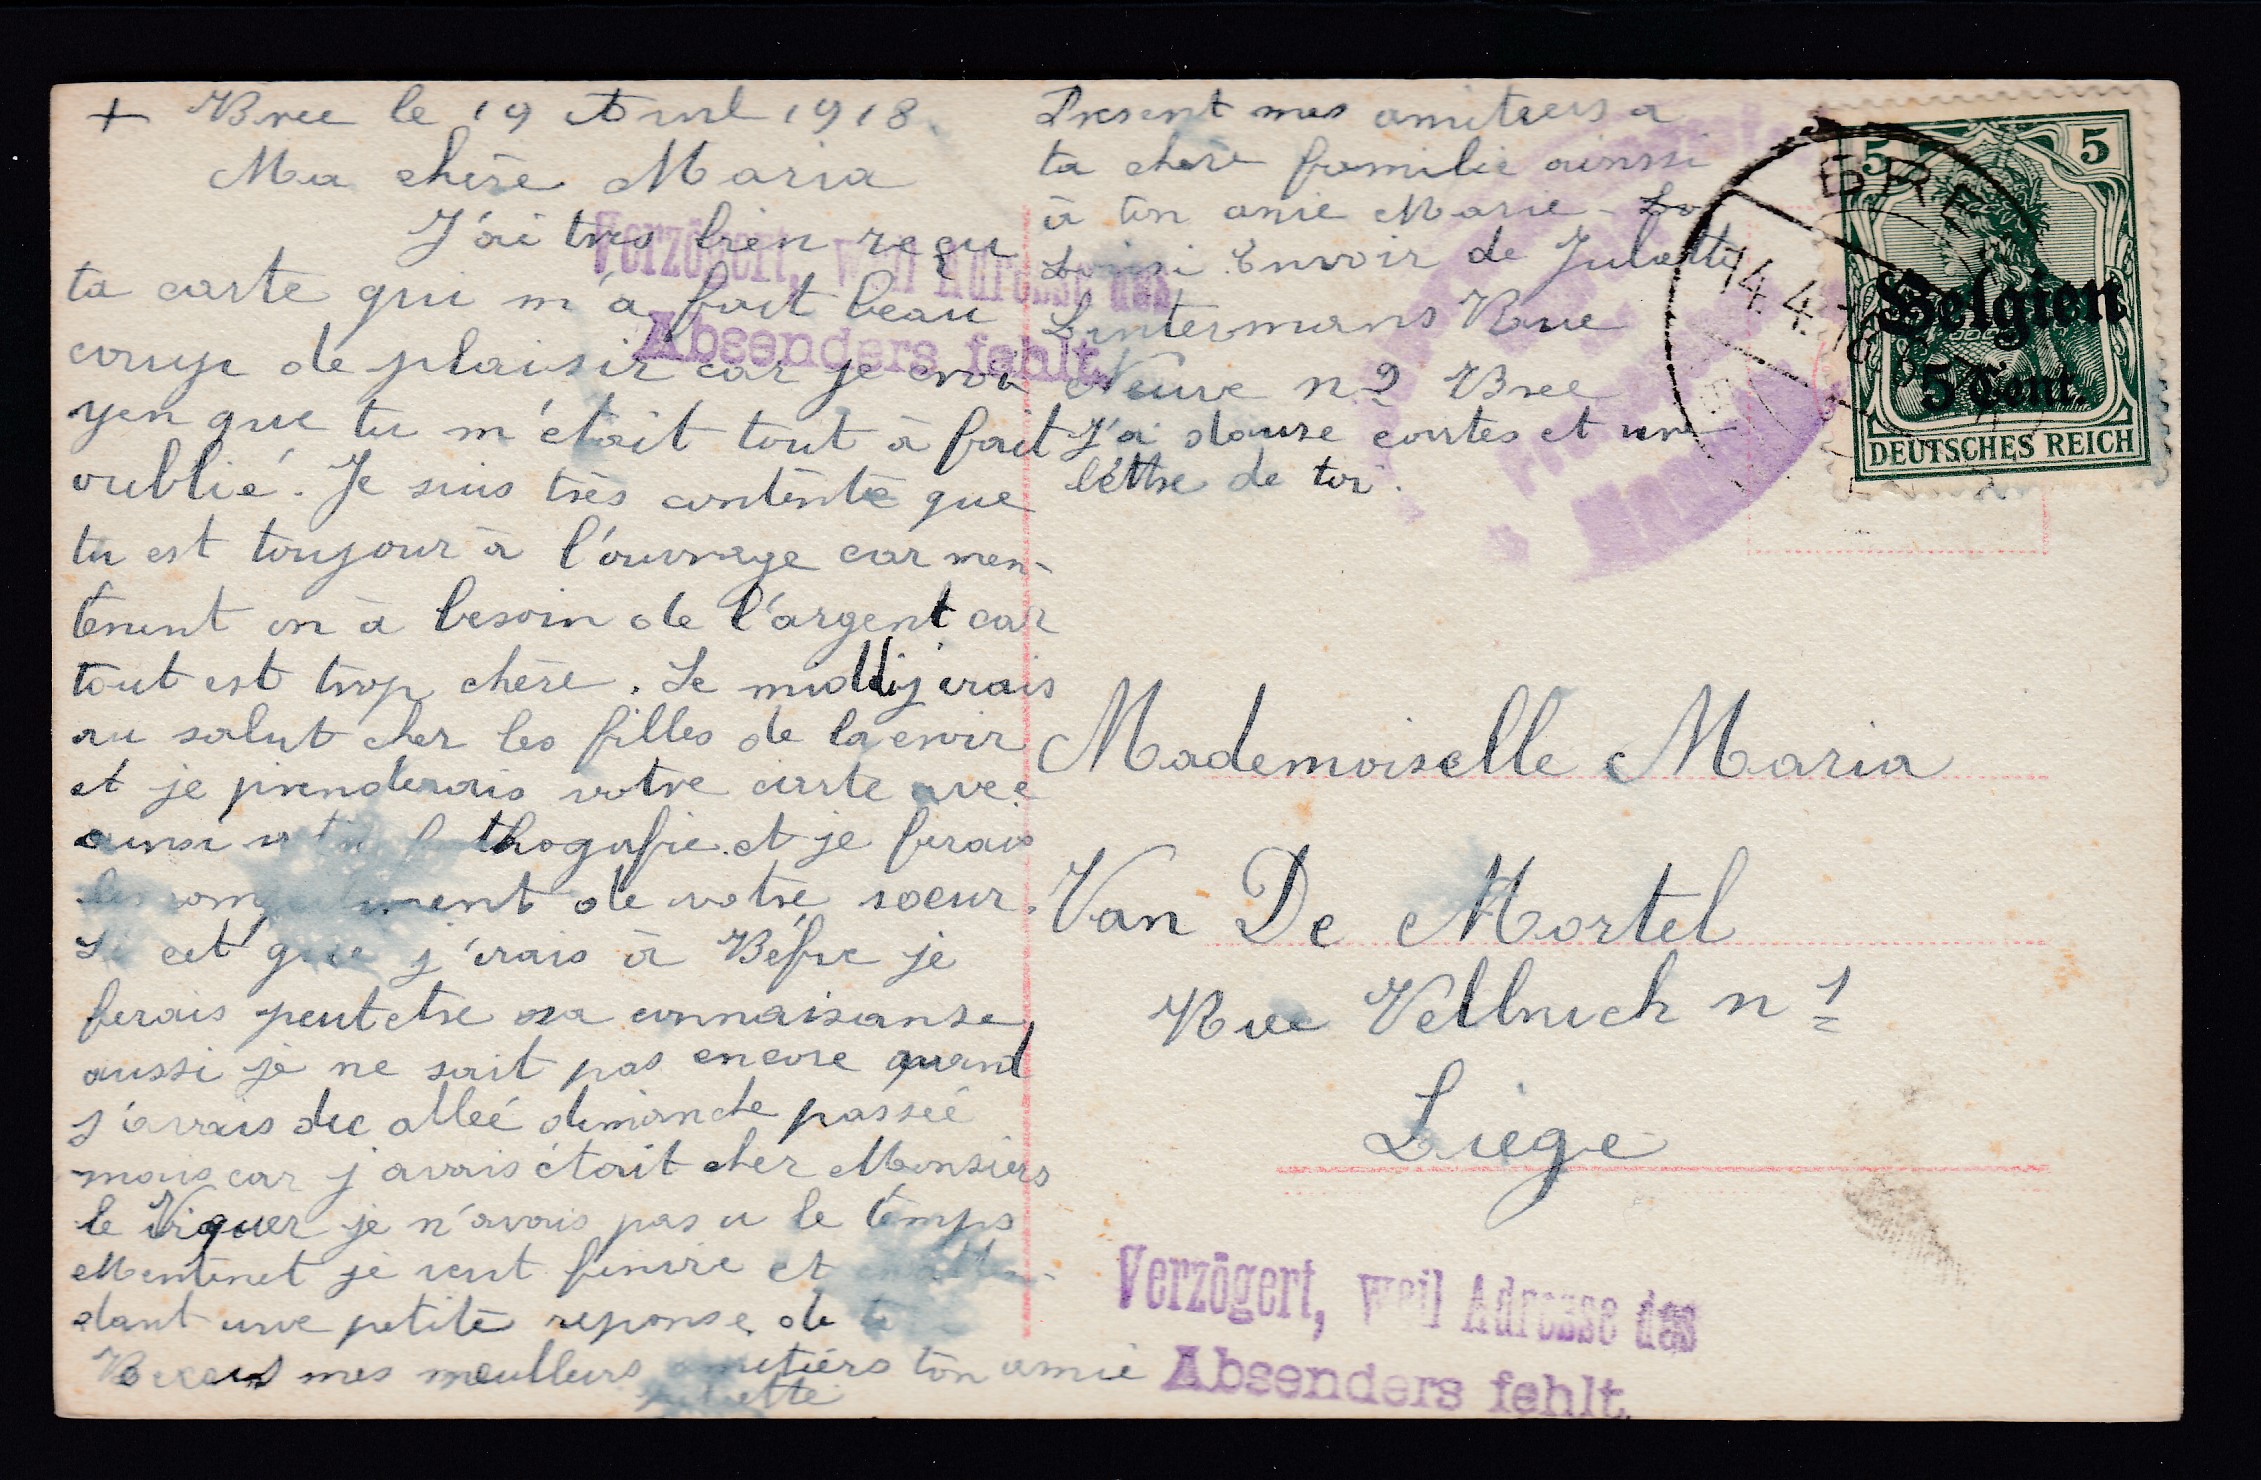 + Bree le 19 Avril 1918.
Ma chère Maria
J'ai tres bien reçu
ta carte qui m'a fait beau
coup de plaisir car je croi
yen que tu m'était tout à fait
oublié. Je suis très contente que
tu est toujour à l'ouvrage car men-
tenent on à besoin de l'argent car
tout est trop chère. Le midi j'irais
au salut cher les filles de la
et je prenderais votre carte avec
ainsi et je ferais
les de votre soeur.
Si cet que j'irais à je
ferais peutetre sa connaisanse
aussi je ne sait pas encore quand
j'avrais alleé dimanche passeé
mais car j'avais était cher Monsiers
le je n'avais pas u le temps
Mentenet je veut finire et
dant une petite reponse de
mes meulleurs amitiérs ton amie
Juliette
Present mes amitiers a
ta chère familie ainssi
à ton amie Marie - Lo
Louisi. Envoir de Juliette
Lintermans Rue
Neuve n 2 Bree
J'ai douse cartes et une
léttre de toi.
Verzögert, weil Adresse des
Absenders fehlt.
BREE
14.4.18
5 5
Belgien
5 Cent.
DEUTSCHES REICH
Mademoiselle Maria
Van De Mortel
Rue Vellruch n 1
Liège
Verzögert, weil Adresse des
Absenders fehlt.